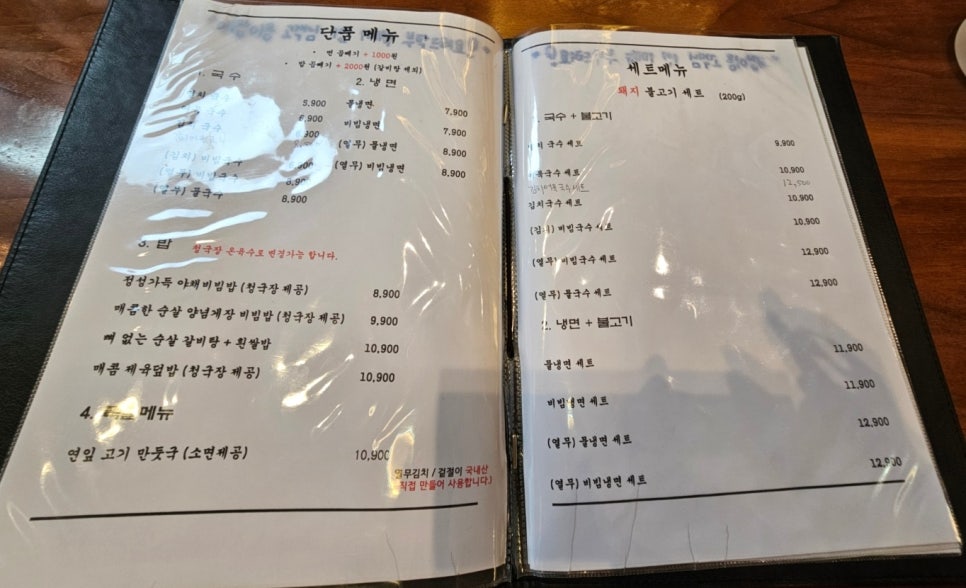 단품 메뉴
• 면 곱빼기 + 1000원
• 밥 곱빼기 + 2000원 (갈비탕 제외)
1. 국수
국수 5,900
국수 6,900
국수 6,900
(김치) 비빔국수
(열무) 비빔국수 8,900
(열무) 물국수 8,900
2. 냉면
물냉면 7,900
비빔냉면 7,900
(열무) 물냉면 8,900
(열무) 비빔냉면 8,900
3. 밥 청국장 온육수로 변경가능 합니다.
정성가득 야채비빔밥 (청국장 제공) 8,900
매콤한 순살 양념게장 비빔밥 (청국장 제공) 9,900
뼈 없는 순살 갈비탕 + 흰쌀밥 10,900
매콤 제육덮밥 (청국장 제공) 10,900
4. 메뉴
연잎 고기 만둣국 (소면제공) 10,900
열무김치 / 겉절이 국내산
직접 만들어 사용합니다.)
세트메뉴
돼지 불고기 세트 (200g)
국수 + 불고기
국수 세트 9,900
국수 세트 10,900
12,500
김치국수 세트 10,900
(김치) 비빔국수 세트 10,900
(열무) 비빔국수 세트 12,900
(열무) 물국수 세트 12,900
2. 냉면 + 불고기
물냉면 세트 11,900
비빔냉면 세트 11,900
(열무) 물냉면 세트 12,900
(열무) 비빔냉면 세트 12,900